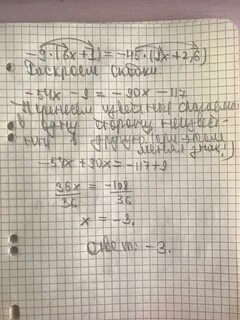 -9·(6x+1)=-45·(2x+2,6)
Раскроем скобки.
-54x -9 = -90x -117
Перенесем известные слагаемые
в одну сторону неизвест-
ные в другую (при этом
меняя знак!)
-54x+90x=-117+9
36x/36 = -108/36
x = -3.
Ответ: -3.